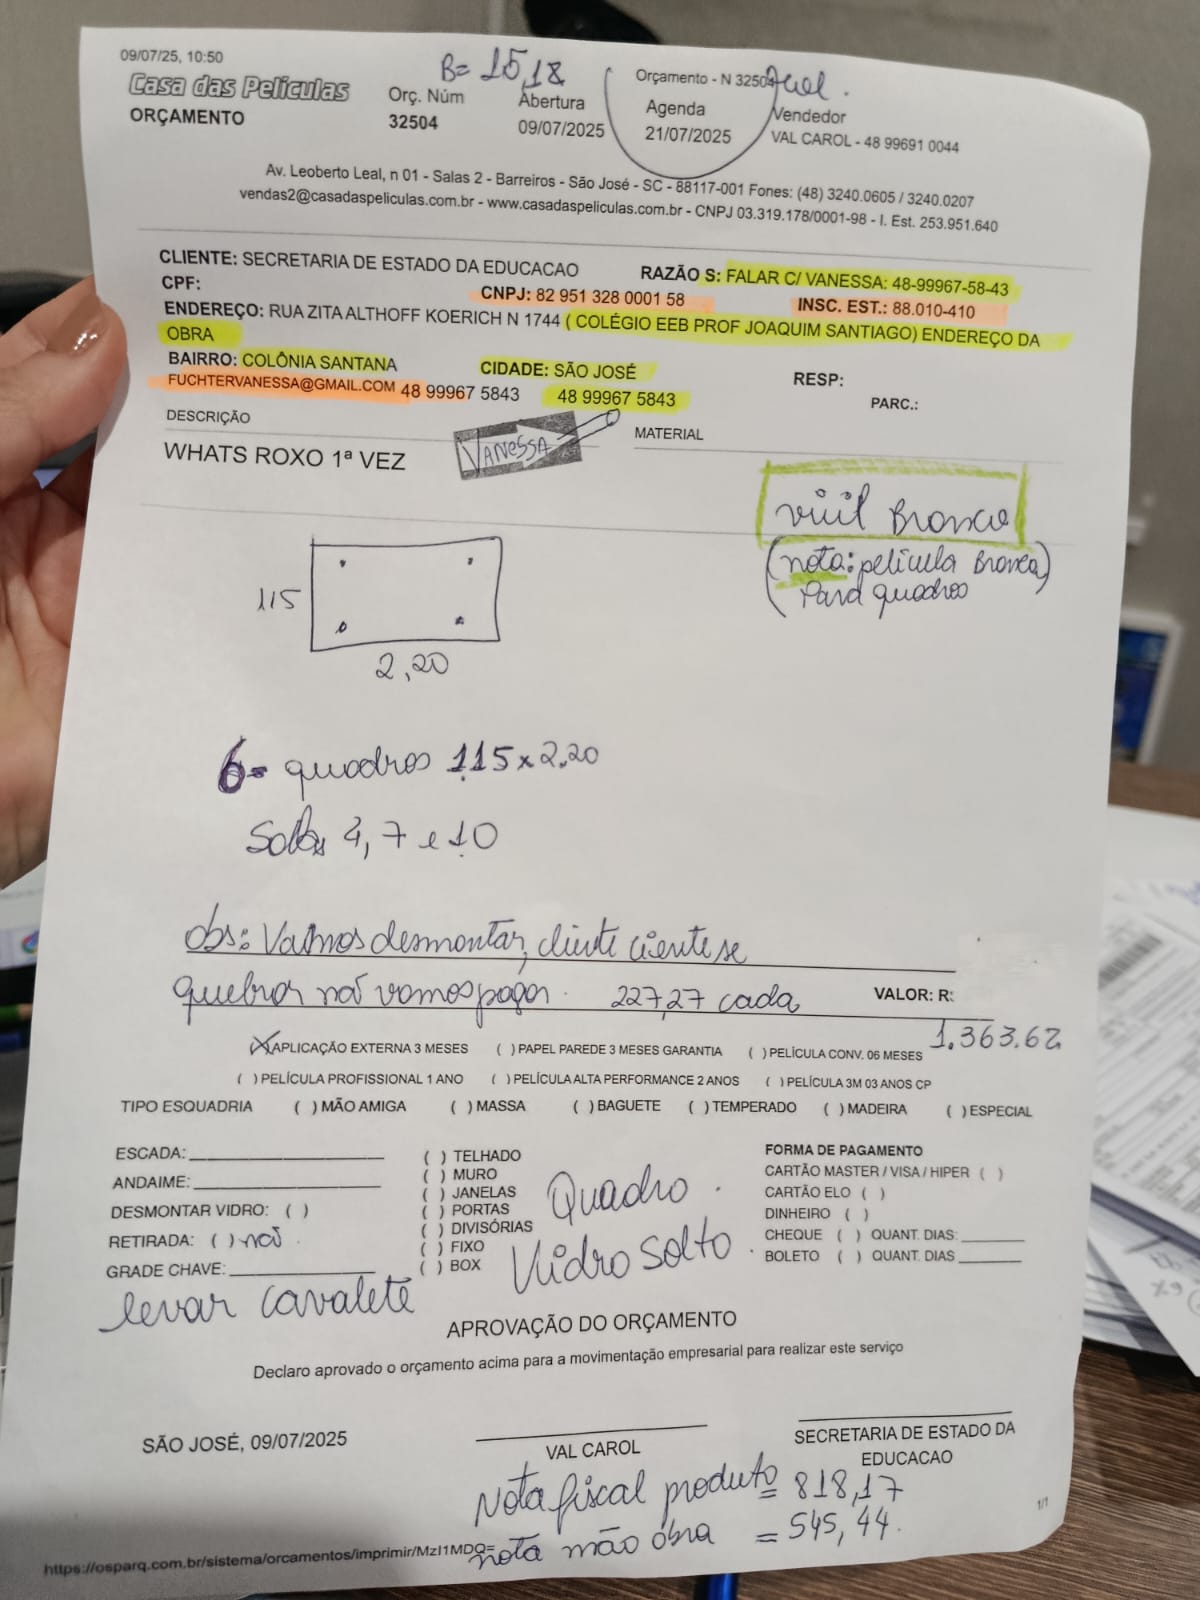 09/07/25, 10:50
B= 15,18
Orçamento - N 32504
Casa das Películas
Orç. Núm
Abertura
Agenda
Vendedor
ORÇAMENTO
32504
09/07/2025
21/07/2025
VAL CAROL - 48 99691 0044
Av. Leoberto Leal, n 01 - Salas 2 - Barreiros - São José - SC - 88117-001 Fones: (48) 3240.0605 / 3240.0207
vendas2@casadaspeliculas.com.br - www.casadaspeliculas.com.br - CNPJ 03.319.178/0001-98 - I. Est. 253.951.640
CLIENTE: SECRETARIA DE ESTADO DA EDUCACAO
RAZÃO S: FALAR C/ VANESSA: 48-99967-58-43
CPF:
CNPJ: 82 951 328 0001 58
INSC. EST.: 88.010-410
ENDEREÇO: RUA ZITA ALTHOFF KOERICH N 1744 ( COLÉGIO EEB PROF JOAQUIM SANTIAGO) ENDEREÇO DA
OBRA
BAIRRO: COLÔNIA SANTANA
CIDADE: SÃO JOSÉ
RESP:
FUCHTERVANESSA@GMAIL.COM 48 99967 5843
48 99967 5843
PARC.:
DESCRIÇÃO
MATERIAL
WHATS ROXO 1ª VEZ
VANESSA
vinil Branco
(nota: película Branca)
Para quadros
115
2,20
6= quadros 115x2.20
Salas 4, 7 e 10
obs: Vamos desmontar, cliente ciente se
quebrar não vamos pagar. 227,27 cada
VALOR: R:
1.363.62
(X)APLICAÇÃO EXTERNA 3 MESES ( )PAPEL PAREDE 3 MESES GARANTIA ( )PELÍCULA CONV. 06 MESES
( )PELÍCULA PROFISSIONAL 1 ANO ( )PELÍCULA ALTA PERFORMANCE 2 ANOS ( )PELÍCULA 3M 03 ANOS CP
TIPO ESQUADRIA ( )MÃO AMIGA ( )MASSA ( )BAGUETE ( )TEMPERADO ( )MADEIRA ( )ESPECIAL
ESCADA:
ANDAIME:
DESMONTAR VIDRO: ( )
RETIRADA: ( ) não
GRADE CHAVE:
levar cavalete
( ) TELHADO
( ) MURO
( ) JANELAS
( ) PORTAS
( ) DIVISÓRIAS
( ) FIXO
( ) BOX
Quadro.
Vidro Solto.
FORMA DE PAGAMENTO
CARTÃO MASTER / VISA / HIPER ( )
CARTÃO ELO ( )
DINHEIRO ( )
CHEQUE ( ) QUANT. DIAS:
BOLETO ( ) QUANT. DIAS
APROVAÇÃO DO ORÇAMENTO
Declaro aprovado o orçamento acima para a movimentação empresarial para realizar este serviço
SÃO JOSÉ, 09/07/2025
VAL CAROL
SECRETARIA DE ESTADO DA
EDUCACAO
Nota fiscal produto = 818,17
nota mão obra = 545,44.
1/1
https://osparq.com.br/sistema/orcamentos/imprimir/MzI1MDQ=